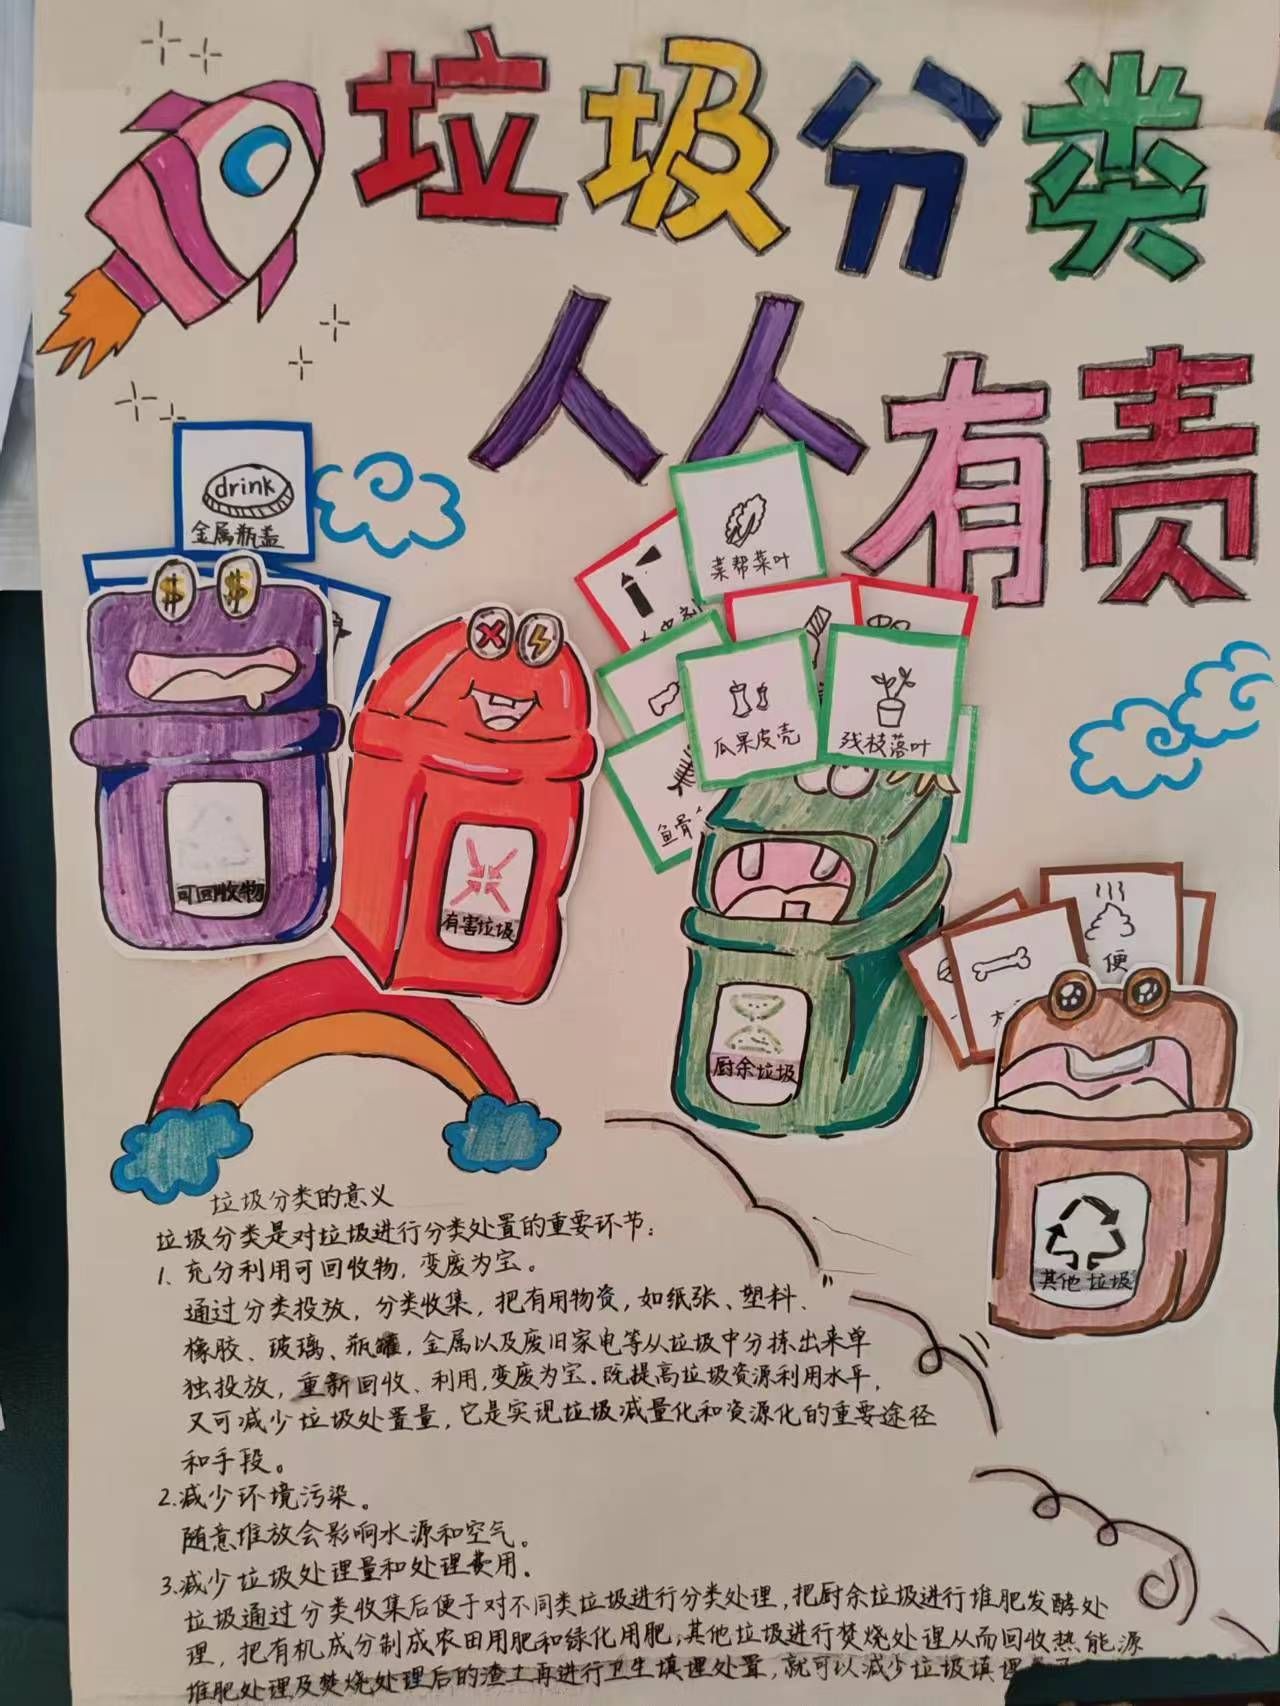 垃圾分类
人人有责
drink
金属瓶盖
菜帮菜叶
瓜果皮壳
残枝落叶
鱼骨
便
可回收物
有害垃圾
厨余垃圾
其他垃圾
垃圾分类的意义
垃圾分类是对垃圾进行分类处置的重要环节:
1、充分利用可回收物,变废为宝。
通过分类投放,分类收集,把有用物资,如纸张、塑料、
橡胶、玻璃、瓶罐,金属以及废旧家电等从垃圾中分拣出来单
独投放,重新回收、利用,变废为宝.既提高垃圾资源利用水平,
又可减少垃圾处置量,它是实现垃圾减量化和资源化的重要途径
和手段。
2.减少环境污染。
随意堆放会影响水源和空气。
3.减少垃圾处理量和处理费用.
垃圾通过分类收集后便于对不同类垃圾进行分类处理,把厨余垃圾进行堆肥发酵处
理,把有机成分制成农田用肥和绿化用肥,其他垃圾进行焚烧处理从而回收热能源
堆肥处理及焚烧处理后的渣土再进行卫生填埋处置,就可以减少垃圾填埋